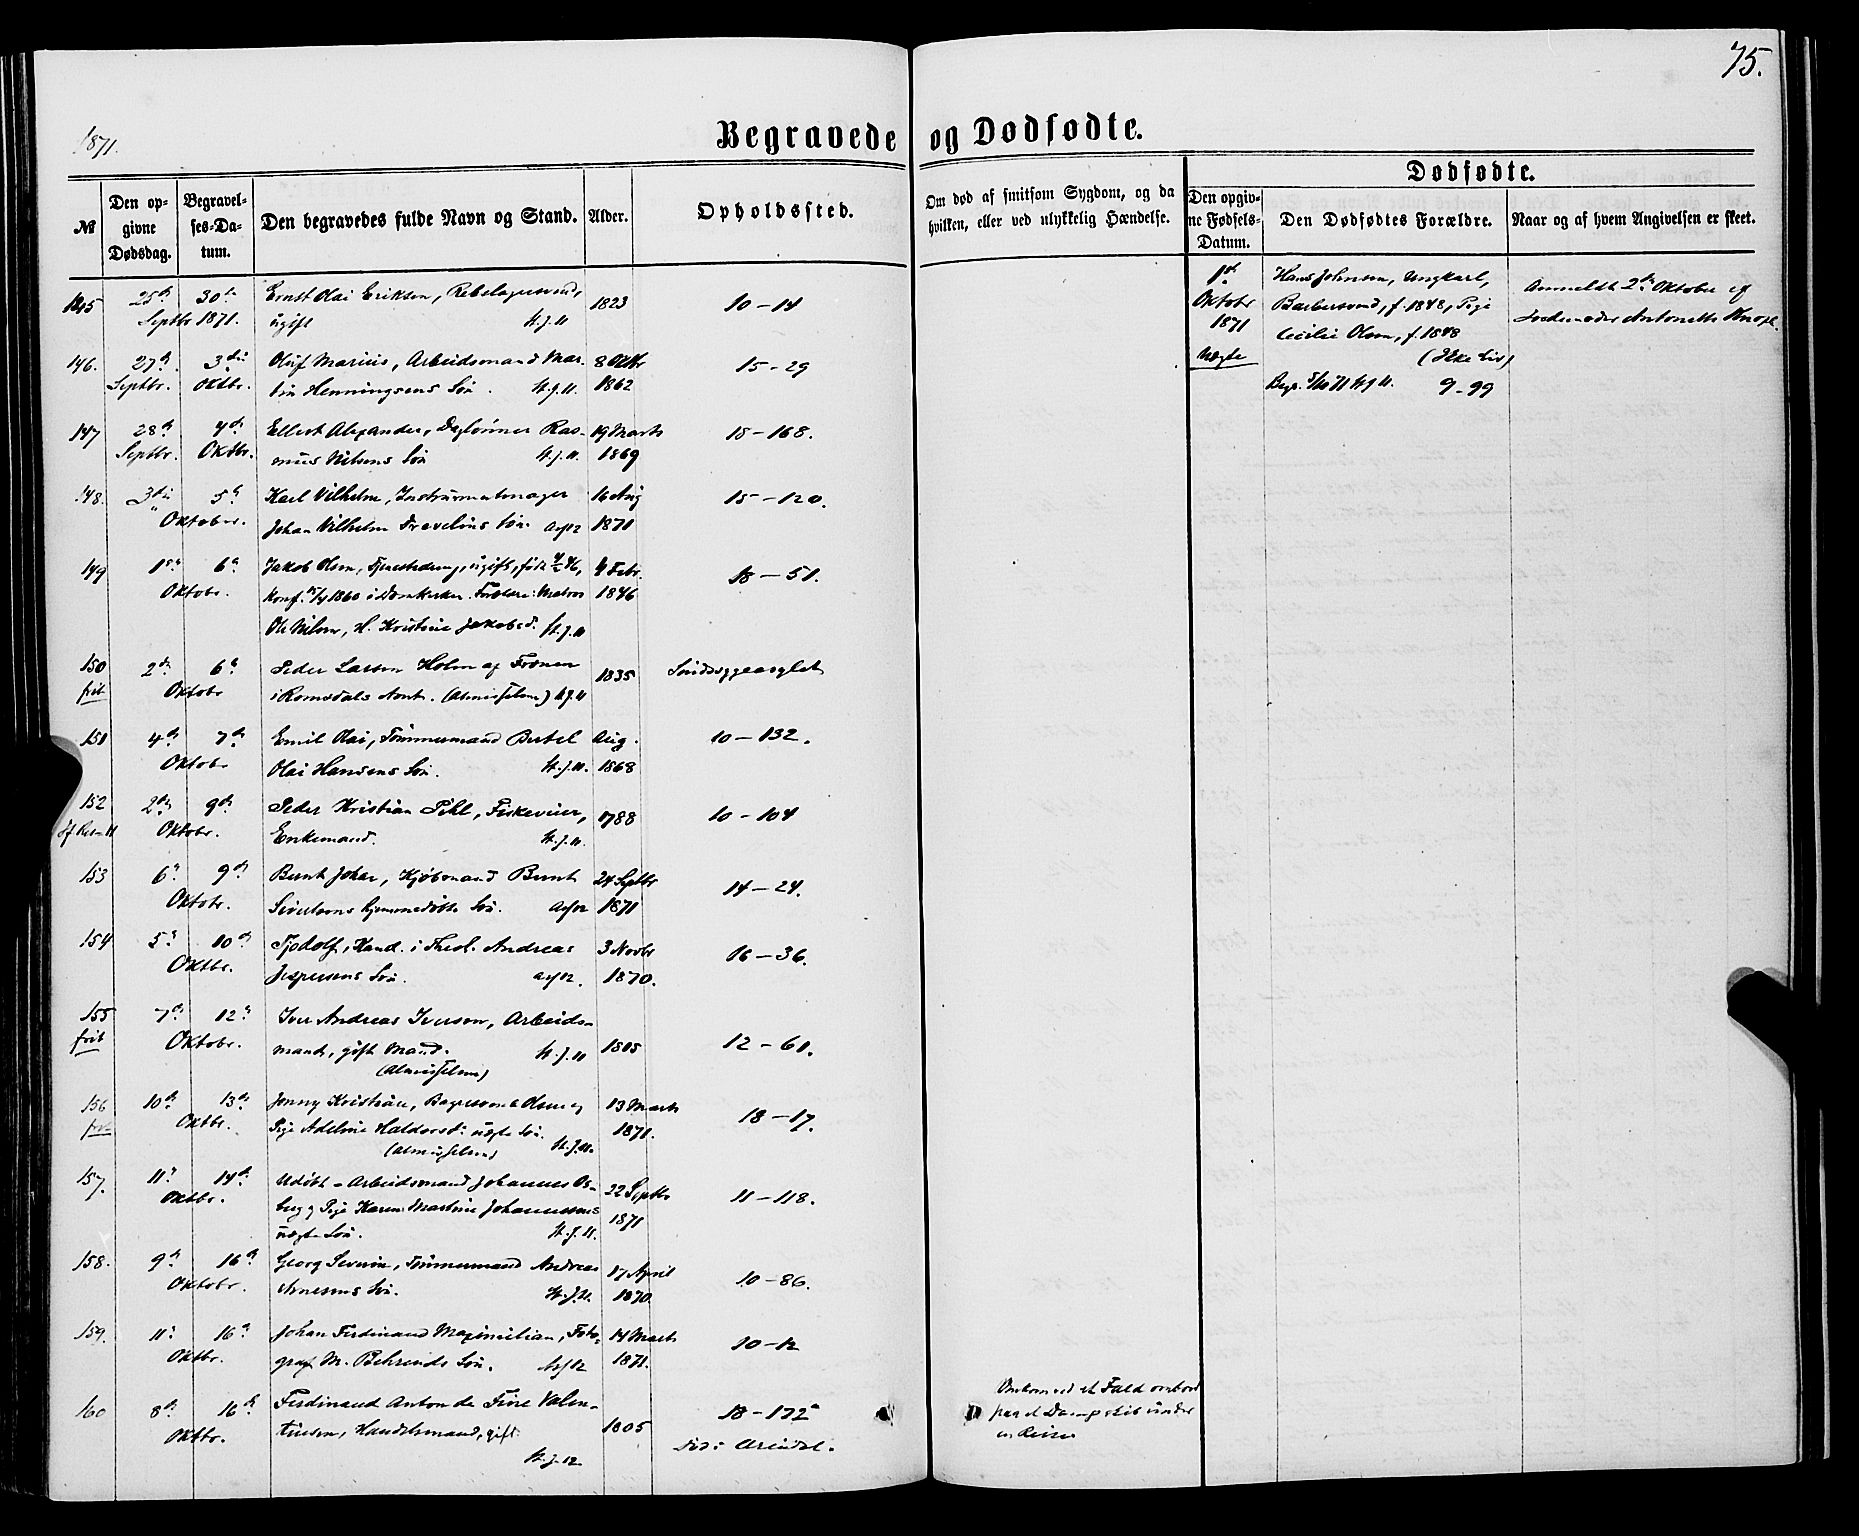 75.
1871.
Begravede og Dødfødte.
№
Den opgivne Dødsdag.
Begravelses-Datum.
Den begravedes fulde Navn og Stand.
Alder.
Opholdssted.
Om død af smitsom Sygdom, og da hvilken, eller ved ulykkelig Hændelse.
Dødfødte.
Den opgivne Fødsels-Datum.
Den Dødfødtes Forældre.
Naar og af hvem Angivelsen er skeet.
145 25de 30te Ernst Olai Eriksen, Rebslagersvend, 1823 10-14
Septbr 1871. ugift St. J. 11
146. 27de 3die Oluf Marius, Arbeidsmand Mar- 8 Oktbr 15-29
Septbr. Oktbr. tin Henningsens Søn. St. J. 11. 1862
147 28de 4de Ellert Alexander, Daglønner Ras- 19 Marts 15-168.
Septbr. Oktbr. mus Nilsens Søn St. J. 11. 1869
148. 3die 5te Karl Vilhelm, Instrumentmager 16 Aug 15-120.
Oktober. Johan Vilhelm Søn. 1871
149 1ste 6te Jakob Olsen, Tjenestedreng, ugift, født 4/2 46, 4 Febr. 18-51.
Oktobr. Konf. 1860 i Domkirken. Forældre: Matros 1846
Ole Nilsen, H. Kristine Jakobsd. St. J. 11
150 2den 6te Peder Larsen Holm af 1835 Sindssygeasylet
frit Oktobr i Romsdals Amt. (Almisselem) St. J. 11
151 4de 7de Emil Olai, Tømmermand Bertel Aug. 10-132.
Oktobr Olai Hansens Søn. St. J. 11. 1868
152 2den 9de Peder Kristian Pihl, 1788 10-104
Oktobr. Enkemand. St. J. 11.
153 6te 9de Bernt Johan, Kjøbmand Bernt 24 Septbr 14-24.
Oktobr. Sivertsens hjemmedøbte Søn. 1871
154 5te 10de Tjodolf, Kand. i Theol. Andreas 3 Novbr 16-36.
Oktbr. Jespersens Søn. 1870.
155 7de 12te Iver Andreas Iversen, Arbeids- 12-61.
frit Oktobr. mand, gift Mand. St. J. 11 1805
(Almisselem)
156 10de 13de Jonny Kristian, Bagersvend Olsen og 13 Marts 18-17.
frit Oktbr. Pige Adeline Haldorsd: uægte Søn. 1871.
(Almisselem) St. J. 11.
157. 11te 14de Udøbt - Arbeidsmand Johannes Os- 22 Septbr 11-118.
Oktbr. berg og Pige Karen Martine Johannessens 1871
uægte Søn. St. J. 11.
158. 9de 16de Georg Severin, Tømmermand Andreas 17 April 10-86.
Oktobr. Arnesens Søn. St. J. 11. 1870.
159. 11te 16de Johan Ferdinand Maximilian, Foto- 14 Marts 10-12
Oktbr. graf M. Behrends Søn. 1871.
160 8de 16de Ferdinand Anton de Fine Valen- 18-172a
Oktbr. tinsen, Handelsmand, gift 1805 Død i Arendal.
St. J. 12
Omkom ved et Fald ombord
paa et Dampskib under
en Reise
1ste
Oktobr
1871
Uægte
Hans Johnsen, Ungkarl,
Barbersvend, f. 1848, Pige
Cecilie Olsen, f. 1848
(Ikke Liv)
Begr. 5/10 71 St. J. 11. 9-99
Anmeldt 2den Oktober af
Jordemoder Antonette